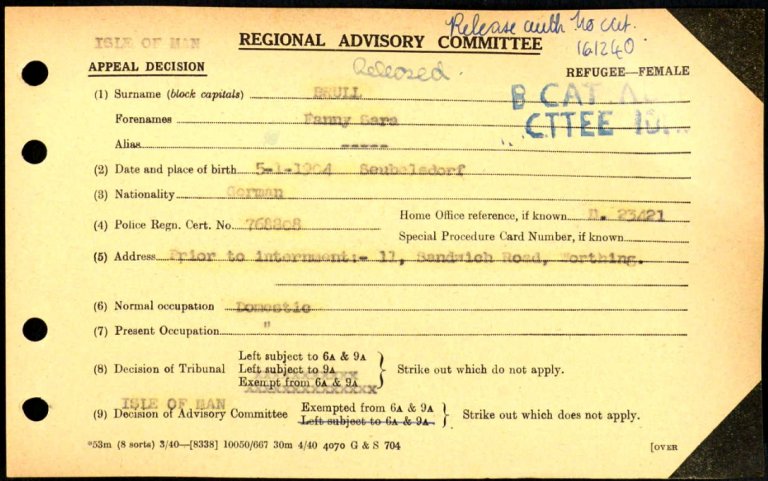 Release auth No cat.
161240
ISLE OF MAN REGIONAL ADVISORY COMMITTEE
Released.
APPEAL DECISION REFUGEE—FEMALE
B CAT A
CTTEE
(1) Surname (block capitals) BRULL
Forenames Fanny Sara
Alias -----
(2) Date and place of birth 5-1-1904 Seubelsdorf
(3) Nationality German
(4) Police Regn. Cert. No. 768808 Home Office reference, if known 23421
Special Procedure Card Number, if known
(5) Address Prior to internment:- 11, Sandwich Road, Worthing.
(6) Normal occupation Domestic
(7) Present Occupation "
(8) Decision of Tribunal Left subject to 6A & 9A
Left subject to 9A Strike out which do not apply.
Exempt from 6A & 9A
ISLE OF MAN
(9) Decision of Advisory Committee Exempted from 6A & 9A
Left subject to 6A & 9A Strike out which does not apply.
*53m (8 sorts) 3/40—[8338] 10050/667 30m 4/40 4070 G & S 704 [OVER